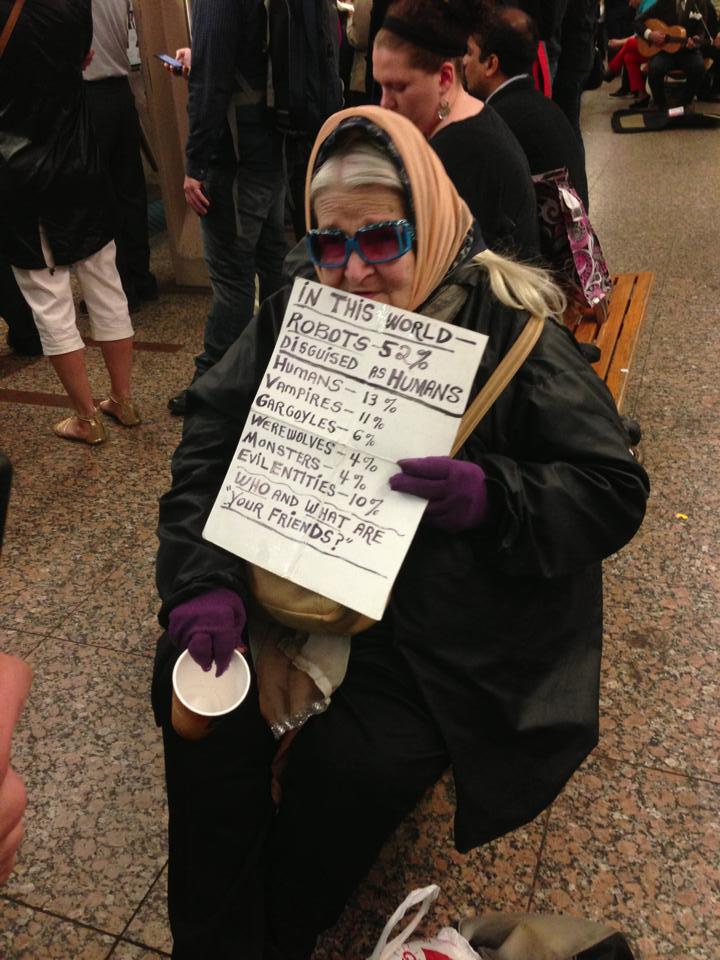 IN THIS WORLD—
ROBOTS 52%
DISGUISED AS HUMANS
HUMANS— 13%
VAMPIRES— 11%
GARGOYLES— 6%
WEREWOLVES— 4%
MONSTERS— 4%
EVIL ENTITIES—10%
WHO AND WHAT ARE
"YOUR FRIENDS?"